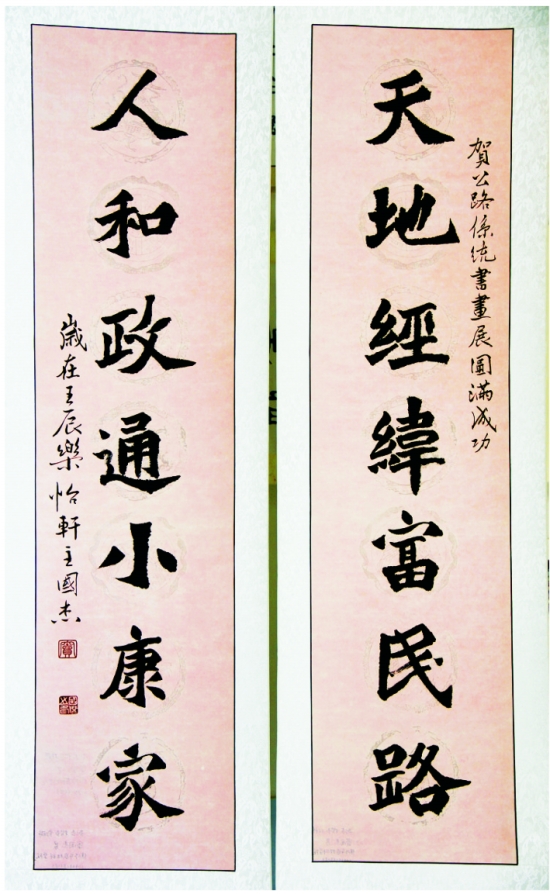 賀公路係統書畫展圓滿成功
天地經緯富民路
人和政通小康家
歲在壬辰樂怡軒主國杰